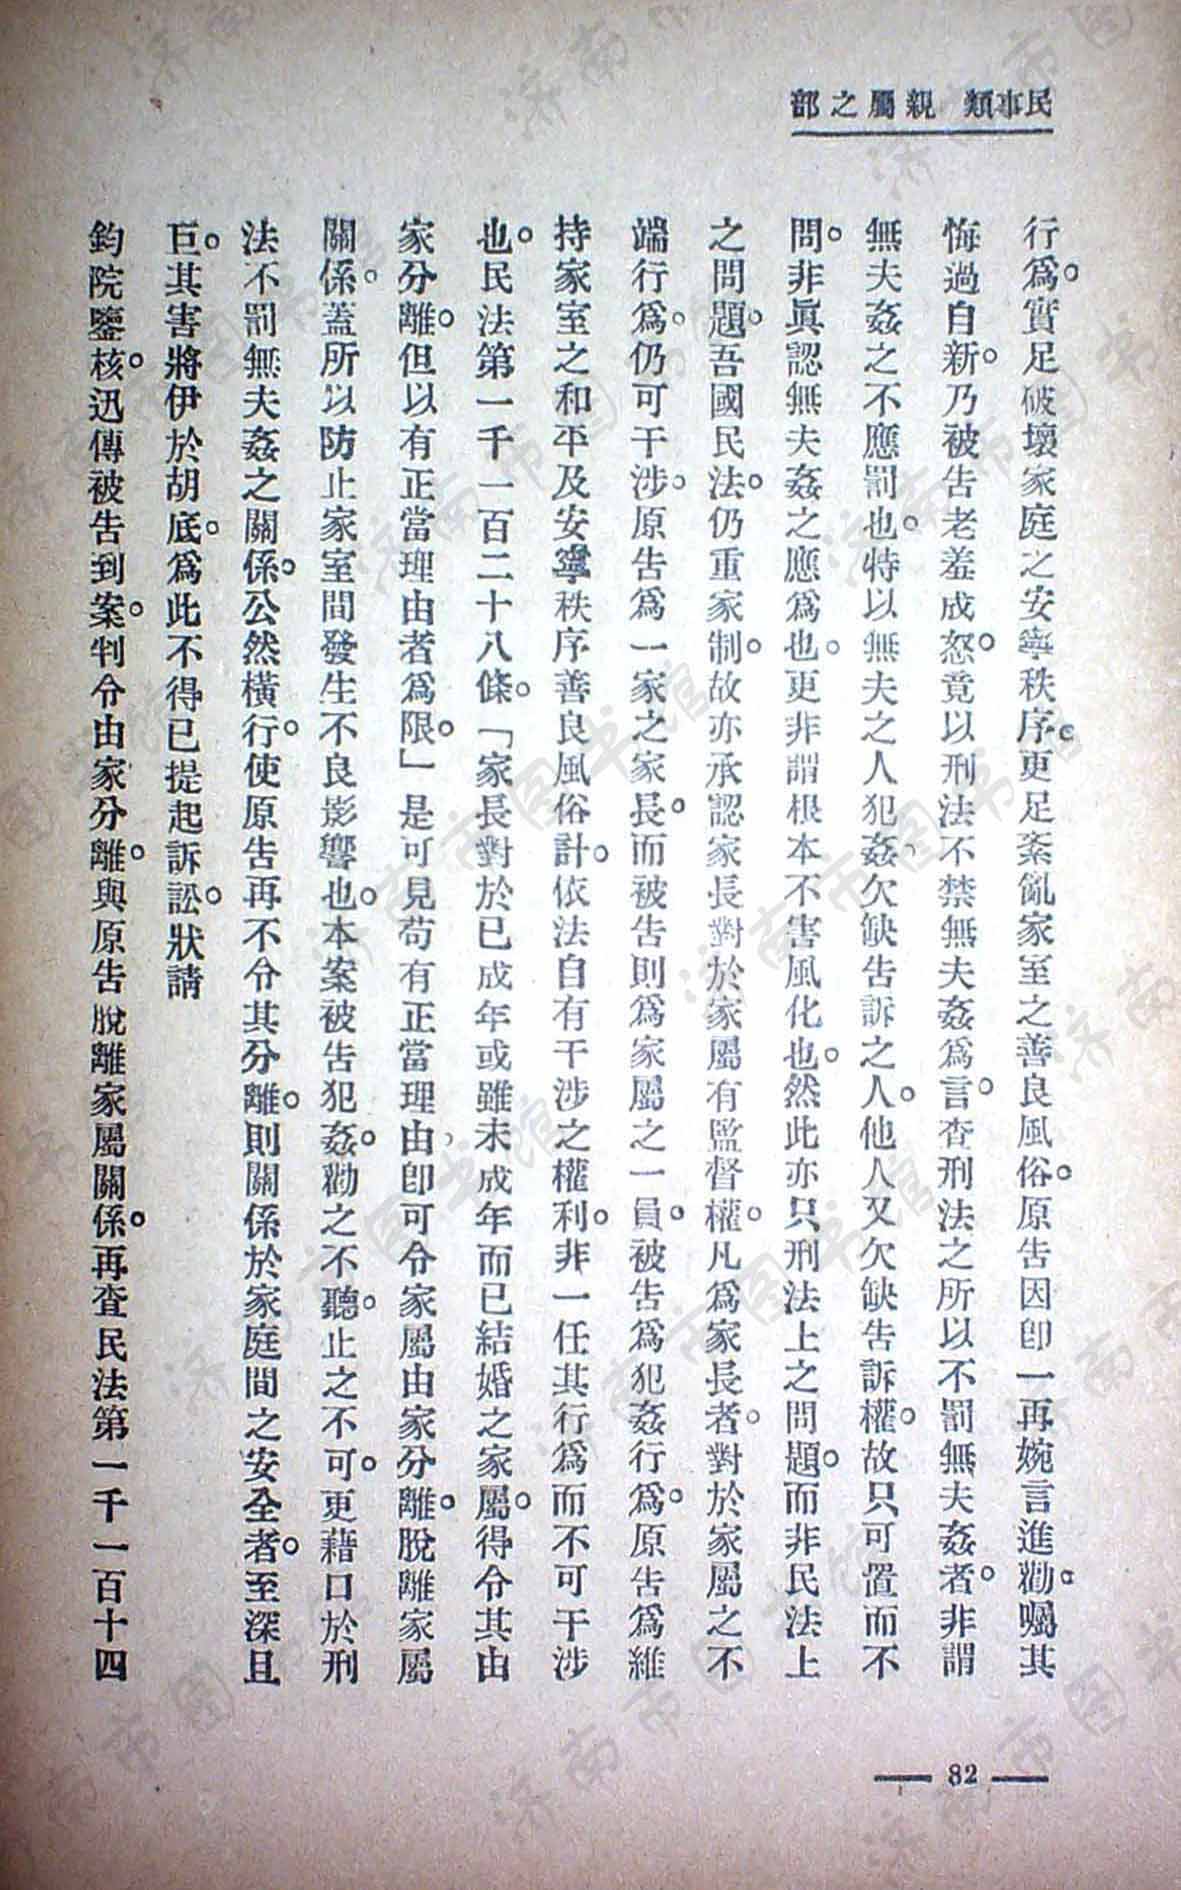 民事類　親屬之部
行爲。實足破壞家庭之安寧秩序。更足紊亂家室之善良風俗。原告因卽一再婉言進勸。囑其
悔過自新。乃被告老羞成怒。竟以刑法不禁無夫姦爲言。查刑法之所以不罰無夫姦者。非謂
無夫姦之不應罰也。特以無夫之人犯姦。欠缺告訴之人。他人又欠缺告訴權。故只可置而不
問。非眞認無夫姦之應爲也。更非謂根本不害風化也。然此亦只刑法上之問題。而非民法上
之問題。吾國民法。仍重家制。故亦承認家長對於家屬有監督權。凡爲家長者。對於家屬之不
端行爲。仍可干涉。原告爲一家之家長。而被告則爲家屬之一員。被告爲犯姦行爲。原告爲維
持家室之和平及安寧秩序善良風俗計。依法自有干涉之權利。非一任其行爲而不可干涉
也。民法第一千一百二十八條。「家長對於已成年或雖未成年而已結婚之家屬。得令其由
家分離。但以有正當理由者爲限。」是可見苟有正當理由，卽可令家屬由家分離。脫離家屬
關係。蓋所以防止家室間發生不良影響也。本案被告犯姦。勸之不聽。止之不可。更藉口於刑
法不罰無夫姦之關係。公然橫行。使原告再不令其分離。則關係於家庭間之安全者。至深且
巨。其害將伊於胡底。爲此不得已提起訴訟。狀請
鈞院鑒核。迅傳被告到案。判令由家分離。與原告脫離家屬關係。再查民法第一千一百十四
— 82 —
济南市图书馆